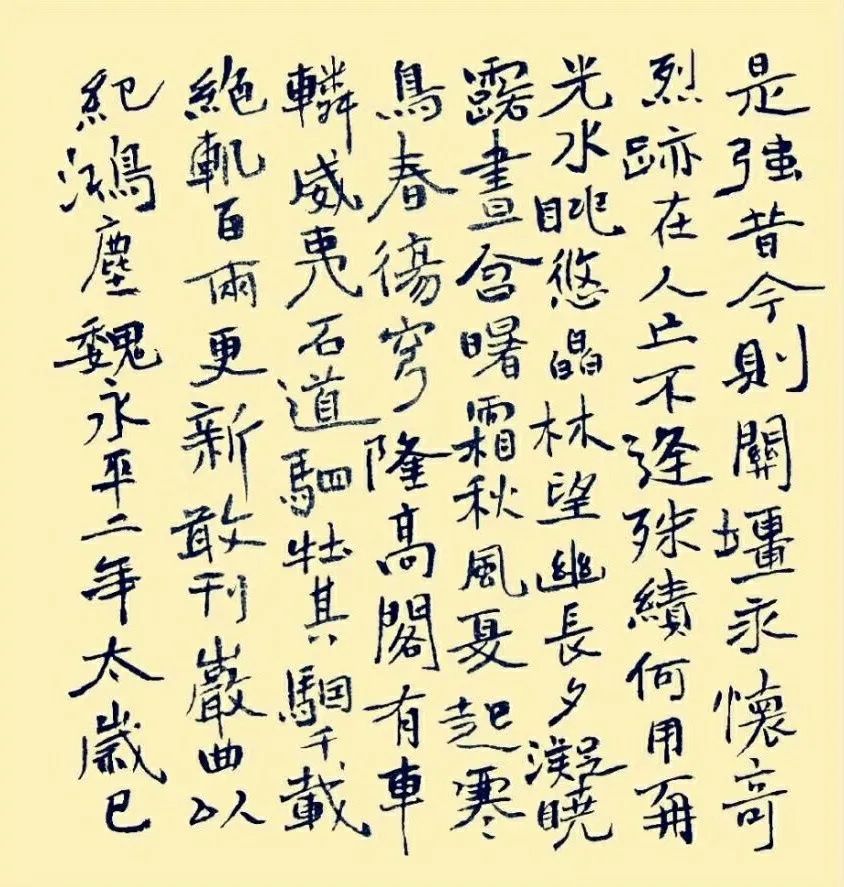 是強昔今則關壃永懷奇
烈跡在人亡不逢殊績何用再
光水眺悠皛林望幽長夕凝曉
露晝含曙霜秋風夏起寒
鳥春傷穹隆高閣有車
轔威夷石道駟牡其駰千載
絕軌百兩更新敢刊巖曲以
紀鴻塵魏永平二年太歲己